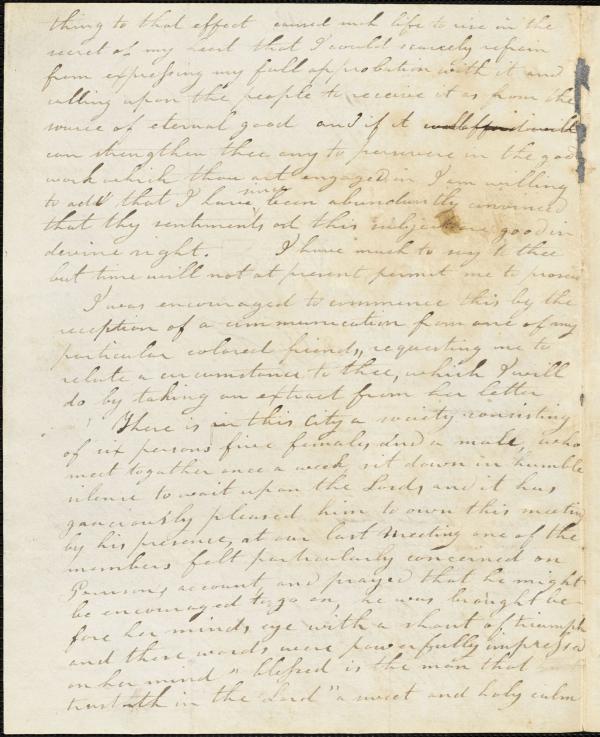 thing to that effect caused such life to rise in the
secret of my heart that I could scarcely refrain
from expressing my full approbation with it and
calling upon the people to receive it as from the
source of eternal good and if it
can strengthen thee any to persevere in the good
work which thou art engaged in I am willing
to add that I have since been abundantly convinced
that thy sentiments on this subject are good in
devine right. I have much to say to thee
but time will not at present permit me to proceed
I was encouraged to commence this by the
reception of a communication from one of my
particular colored friends, requesting me to
relate a circumstance to thee, which I will
do by taking an extract from her letter
There is in this City a society consisting
of six persons five females and a male, who
meet together once a week sit down in humble
silence to wait upon the Lord, and it has
graciously pleased him to own this meeting
by his presence, at our last meeting one of the
members felt particularly concerned on
account, and prayed that he might
be encouraged to go on, he was brought be-
fore her minds eye with a shout of triumph
and these words were powerfully impressed
on her mind "blessed is the man that
trusteth in the Lord" a sweet and holy calm